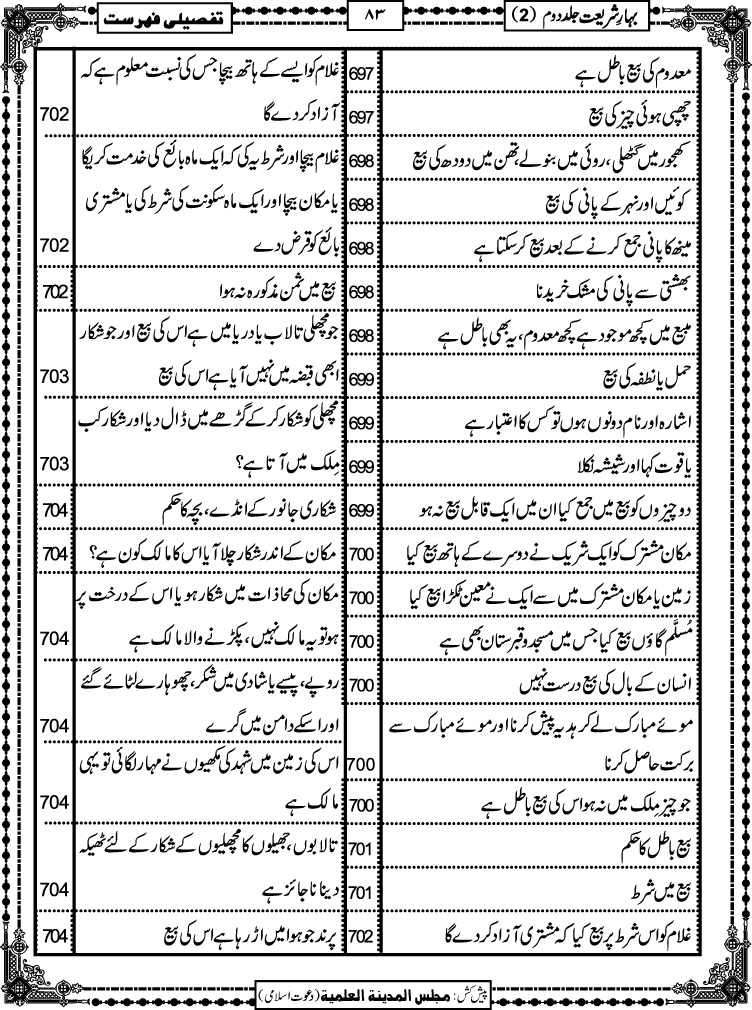 بہارِ شریعت جلد دوم (2)
۸۳
تفصیلی فہرست
معدوم کی بیع باطل ہے 697
چھپی ہوئی چیز کی بیع 697
کھجور میں گٹھلی، روئی میں بنولے، تھن میں دودھ کی بیع 698
کوئیں اور نہر کے پانی کی بیع 698
مینھ کا پانی جمع کرنے کے بعد بیع کر سکتا ہے 698
بھشتی سے پانی کی مشک خریدنا 698
مبیع میں کچھ موجود ہے کچھ معدوم، یہ بھی باطل ہے 698
حمل یا نطفہ کی بیع 699
اشارہ اور نام دونوں ہوں تو کس کا اعتبار ہے 699
یاقوت کہا اور شیشہ نکلا 699
دو چیزوں کو بیع میں جمع کیا ان میں ایک قابل بیع نہ ہو 699
مکان مشترک کو ایک شریک نے دوسرے کے ہاتھ بیع کیا 700
زمین یا مکان مشترک میں سے ایک نے معین ٹکڑا بیع کیا 700
مُسلَّم گاؤں بیع کیا جس میں مسجد و قبرستان بھی ہے 700
انسان کے بال کی بیع درست نہیں 700
موئے مبارک لے کر ہدیہ پیش کرنا اور موئے مبارک سے
برکت حاصل کرنا 700
جو چیز مِلک میں نہ ہو اس کی بیع باطل ہے 700
بیع باطل کا حکم 701
بیع میں شرط 701
غلام کو اس شرط پر بیع کیا کہ مشتری آزاد کر دے گا 702
غلام کو ایسے کے ہاتھ بیچا جس کی نسبت معلوم ہے کہ
آزاد کر دے گا 702
غلام بیچا اور شرط یہ کی کہ ایک ماہ بائع کی خدمت کریگا
یا مکان بیچا اور ایک ماہ سکونت کی شرط کی یا مشتری
بائع کو قرض دے 702
بیع میں ثمن مذکور نہ ہوا 702
جو مچھلی تالاب یا دریا میں ہے اس کی بیع اور جو شکار
ابھی قبضہ میں نہیں آیا ہے اس کی بیع 703
مچھلی کو شکار کر کے گڑھے میں ڈال دیا اور شکار کب
مِلک میں آتا ہے؟ 703
شکاری جانور کے انڈے، بچہ کا حکم 704
مکان کے اندر شکار چلا آیا اس کا مالک کون ہے؟ 704
مکان کی محاذات میں شکار ہو یا اس کے درخت پر
ہو تو یہ مالک نہیں، پکڑنے والا مالک ہے 704
روپے، پیسے یا شادی میں شکر، چھوہارے لٹائے گئے
اور اسکے دامن میں گرے 704
اس کی زمین میں شہد کی مکھیوں نے مہار لگائی تو یہی
مالک ہے 704
تالابوں، جھیلوں کا مچھلیوں کے شکار کے لئے ٹھیکہ
دینا ناجائز ہے 704
پرند جو ہوا میں اڑ رہا ہے اس کی بیع 704
پیش کش: مجلس المدينة العلمية (دعوت اسلامی)